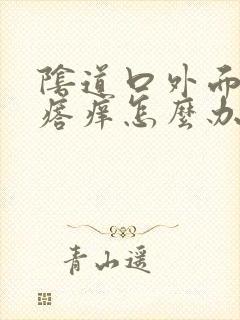 陰道口外面
瘩痒怎麼办
青山遥